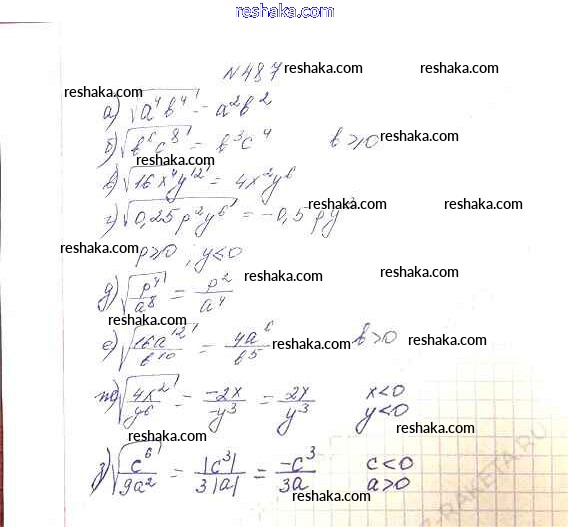 reshaka.com
№487 reshaka.com reshaka.com
reshaka.com
а) √a⁴b⁴ = a²b²
б) √b⁶c⁸ = b³c⁴ b⩾0 reshaka.com
reshaka.com
в) √16x⁴y¹² = 4x²y⁶
reshaka.com reshaka.com
г) √0,25p²y⁶ = -0,5py³
reshaka.com p⩾0; y⩽0 reshaka.com
reshaka.com reshaka.com
д) √p⁴/a⁸ = p²/a⁴
reshaka.com
е) √16a¹²/b¹⁰ = 4a⁶/b⁵ reshaka.com b>0 reshaka.com
ж) √4x²/y⁶ = -2x/-y³ = 2x/y³ x<0
y<0
reshaka.com
з) √c⁶/9a² = |c³|/3|a| = -c³/3a c<0
a>0
reshaka.com